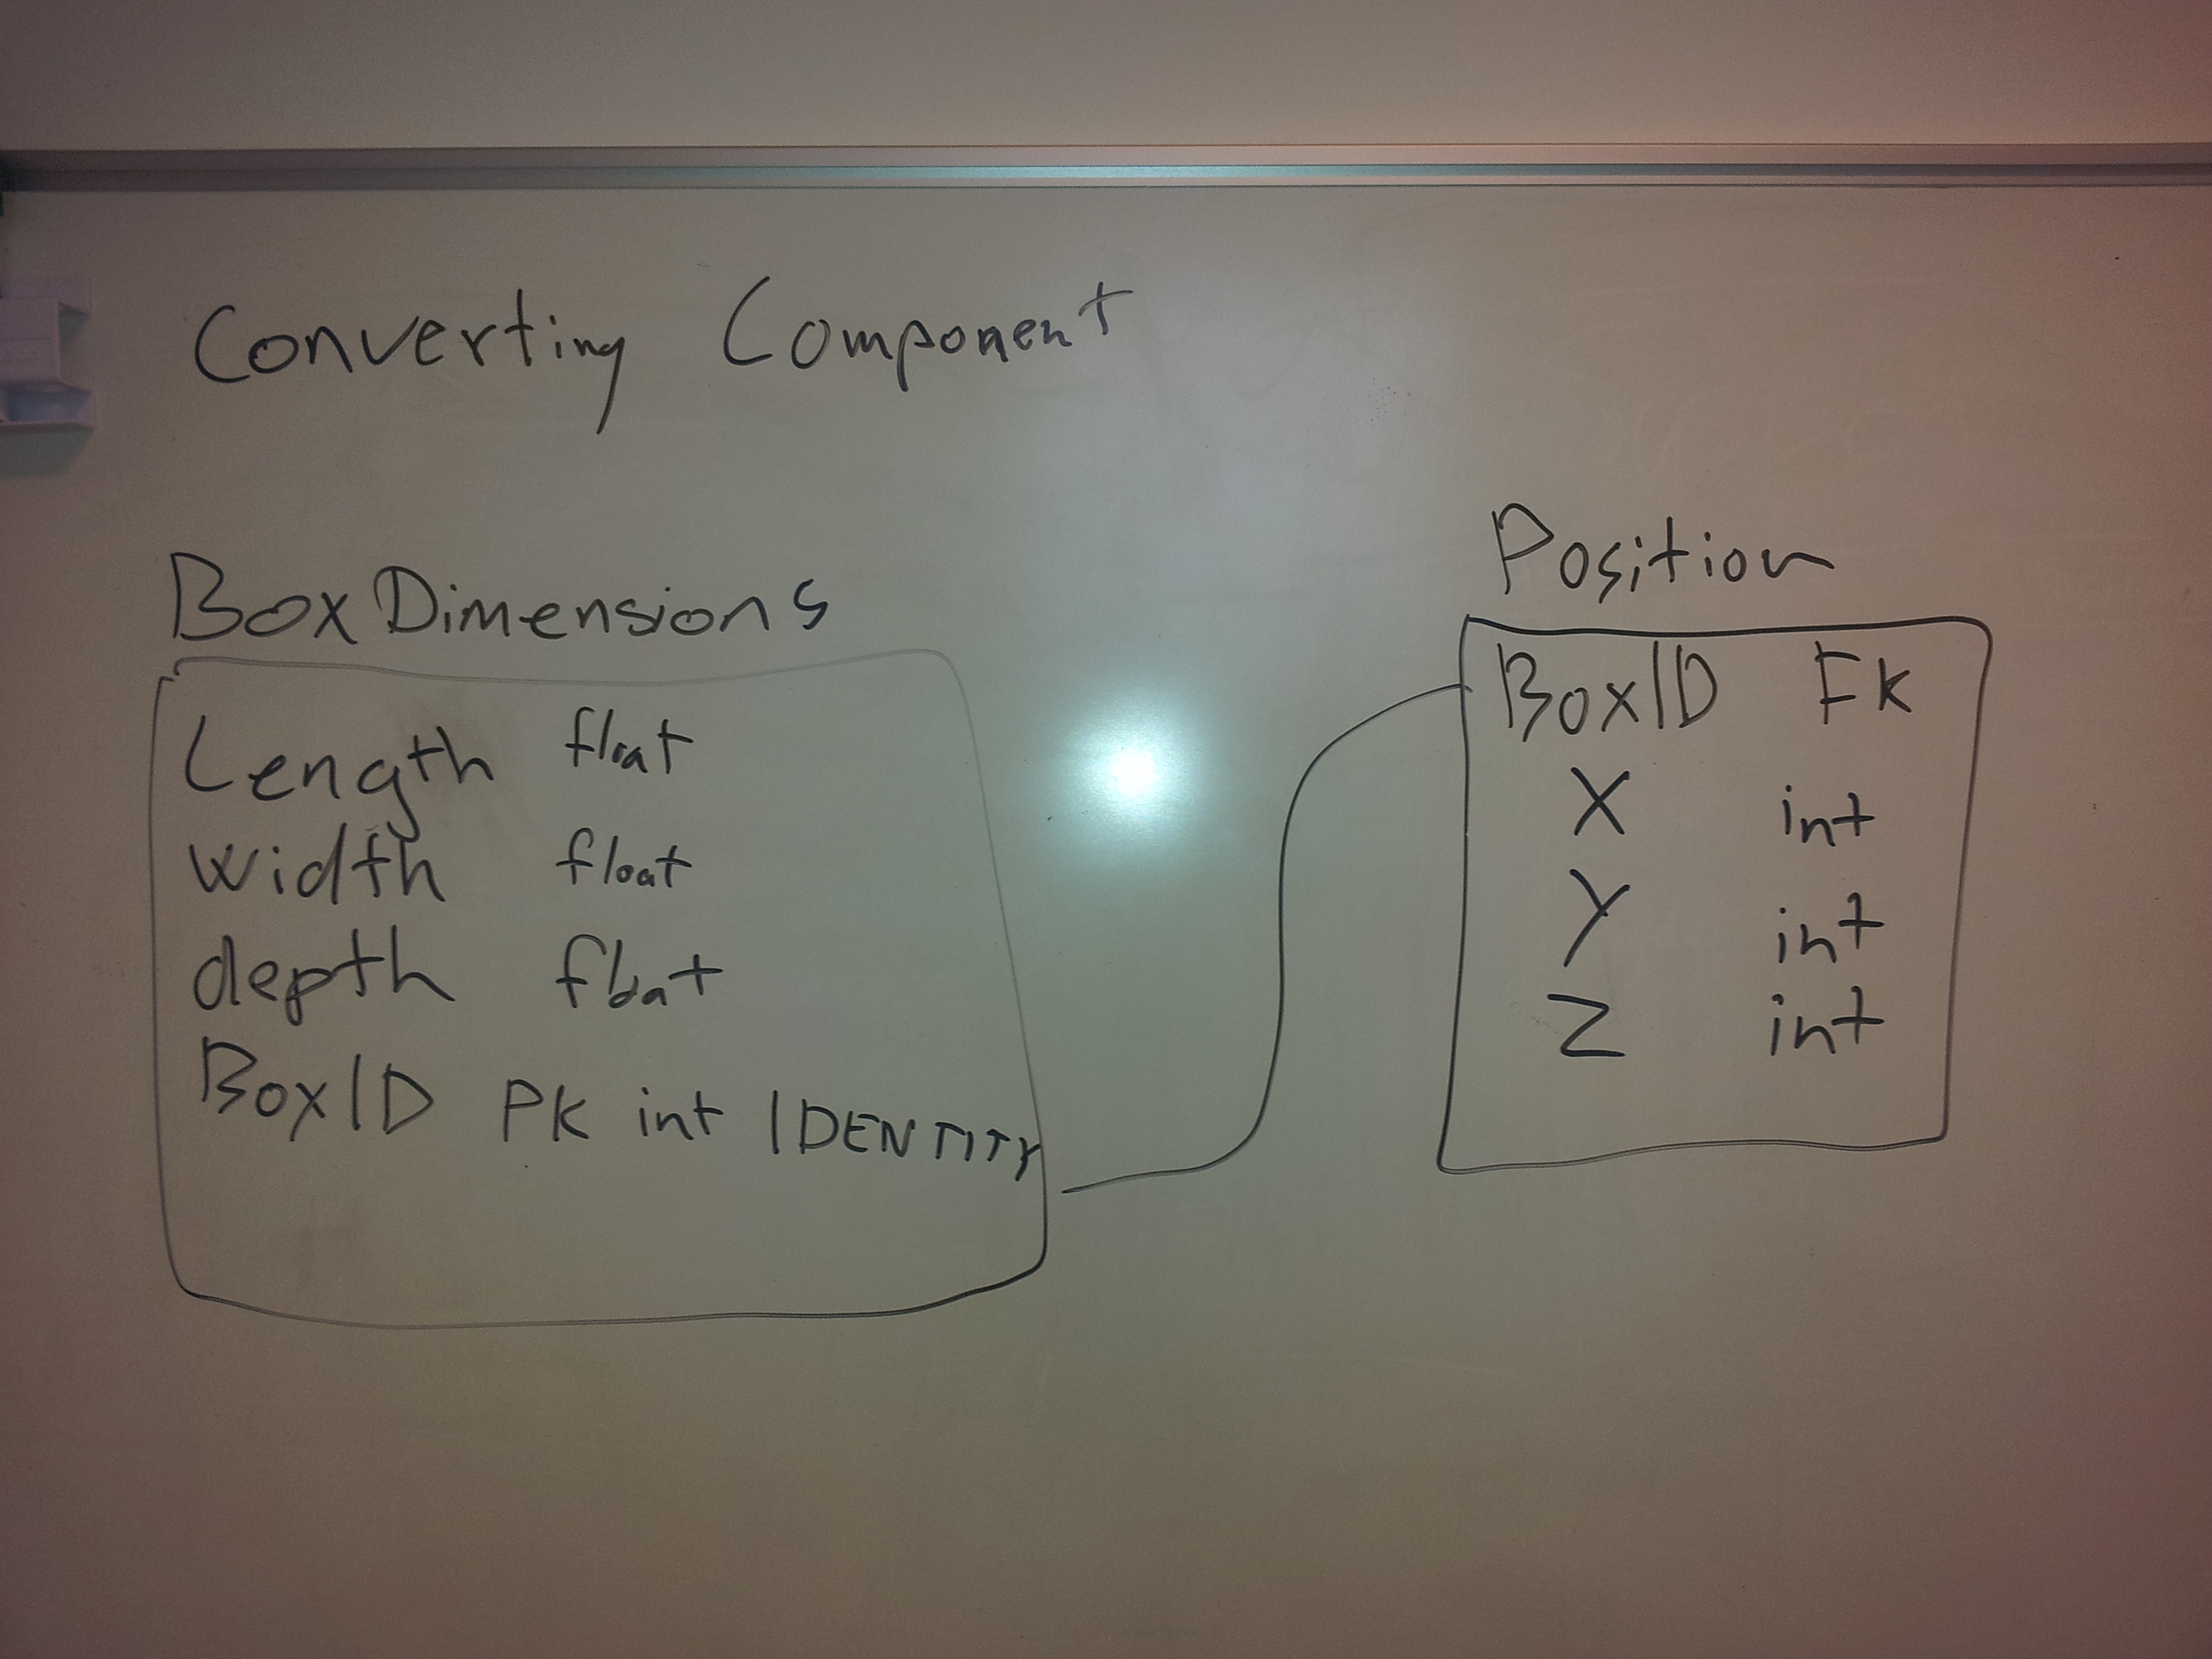 Converting Component
BoxDimensions
Length float
width float
depth float
BoxID PK int IDENTITY
Position
BoxID FK
X int
Y int
Z int